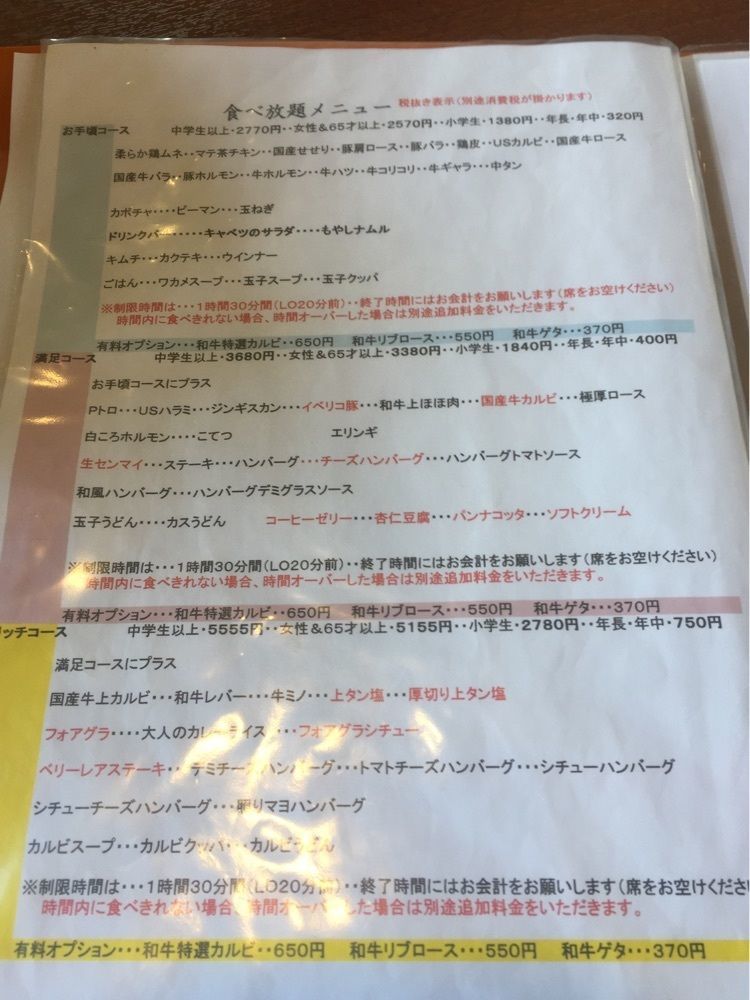 食べ放題メニュー 税抜き表示(別途消費税が掛かります)
お手頃コース 中学生以上・2770円・・女性&65才以上・2570円・・小学生・1380円・・年長・年中・320円
柔らか鶏ムネ・・マテ茶チキン・・国産せせり・・豚肩ロース・・豚バラ・・鶏皮・・USカルビ・・国産牛ロース
国産牛バラ・・豚ホルモン・・牛ホルモン・・牛ハツ・・牛コリコリ・・牛ギャラ・・中タン
カボチャ・・・・ピーマン・・・玉ねぎ
ドリンクバー・・・・・キャベツのサラダ・・・・もやしナムル
キムチ・・・カクテキ・・・ウインナー
ごはん・・・ワカメスープ・・・玉子スープ・・・玉子クッパ
※制限時間は・・・1時間30分間(LO20分前)・・終了時間にはお会計をお願いします(席をお空けください)
時間内に食べきれない場合、時間オーバーした場合は別途追加料金をいただきます。
有料オプション・・・和牛特選カルビ・・650円 和牛リブロース・・・550円 和牛ゲタ・・・370円
満足コース 中学生以上・3680円・・女性&65才以上・3380円・・小学生・1840円・・年長・年中・400円
お手頃コースにプラス
Pトロ・・・USハラミ・・・ジンギスカン・・・イベリコ豚・・・和牛上ほほ肉・・・国産牛カルビ・・・極厚ロース
白ころホルモン・・・・こてつ エリンギ
生センマイ・・・ステーキ・・・ハンバーグ・・・チーズハンバーグ・・・ハンバーグトマトソース
和風ハンバーグ・・・ハンバーグデミグラスソース
玉子うどん・・・・カスうどん コーヒーゼリー・・・杏仁豆腐・・・パンナコッタ・・・ソフトクリーム
※制限時間は・・・1時間30分間(LO20分前)・・終了時間にはお会計をお願いします(席をお空けください)
時間内に食べきれない場合、時間オーバーした場合は別途追加料金をいただきます。
有料オプション・・・和牛特選カルビ・・650円 和牛リブロース・・・550円 和牛ゲタ・・・370円
ッチコース 中学生以上・5555円・・女性&65才以上・5155円・・小学生・2780円・・年長・年中・750円
満足コースにプラス
国産牛上カルビ・・・和牛レバー・・・牛ミノ・・・上タン塩・・・厚切り上タン塩
フォアグラ・・・・大人のカレーライス・・・フォアグラシチュー
ベリーレアステーキ・・・デミチーズハンバーグ・・・トマトチーズハンバーグ・・・シチューハンバーグ
シチューチーズハンバーグ・・・照りマヨハンバーグ
カルビスープ・・・カルビクッパ・・・カルビうどん
※制限時間は・・・1時間30分間(LO20分前)・・終了時間にはお会計をお願いします(席をお空けくださ
時間内に食べきれない場合、時間オーバーした場合は別途追加料金をいただきます。
有料オプション・・・和牛特選カルビ・・650円 和牛リブロース・・・550円 和牛ゲタ・・・370円